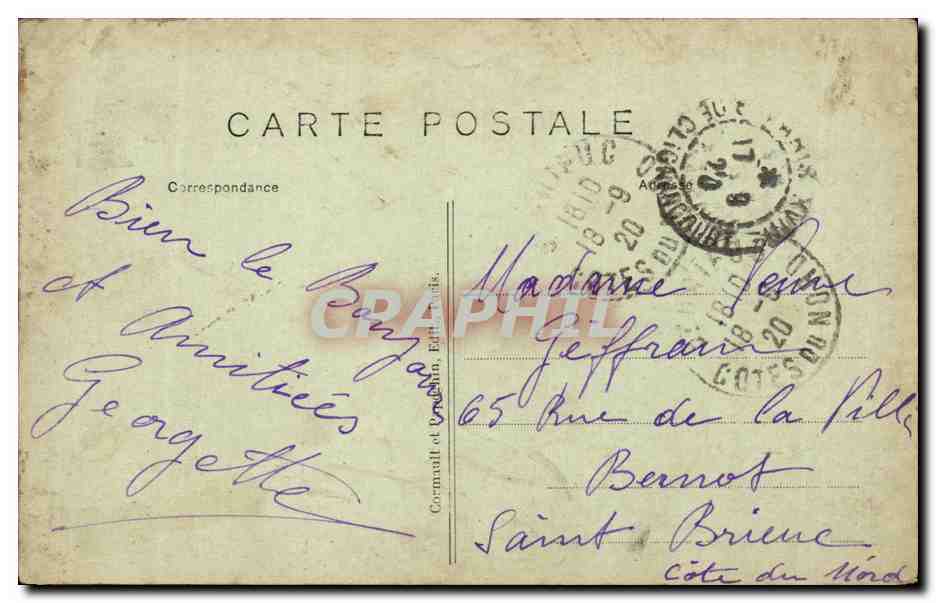 CARTE POSTALE
Correspondance
Adresse
Bien le Bonjour
et Amitiées
Georgette
Madame Veuve
Geffrain
65 Rue de la Ville
Bernot
Saint Brieuc
Côte du Nord
Cormault et Edit., Paris.
CRAPHIL
PARIS
DE CLIGNANCOURT
17-9
20
1810
18-9
20
COTES DU NORD
1810
18-9
20
COTES DU NORD